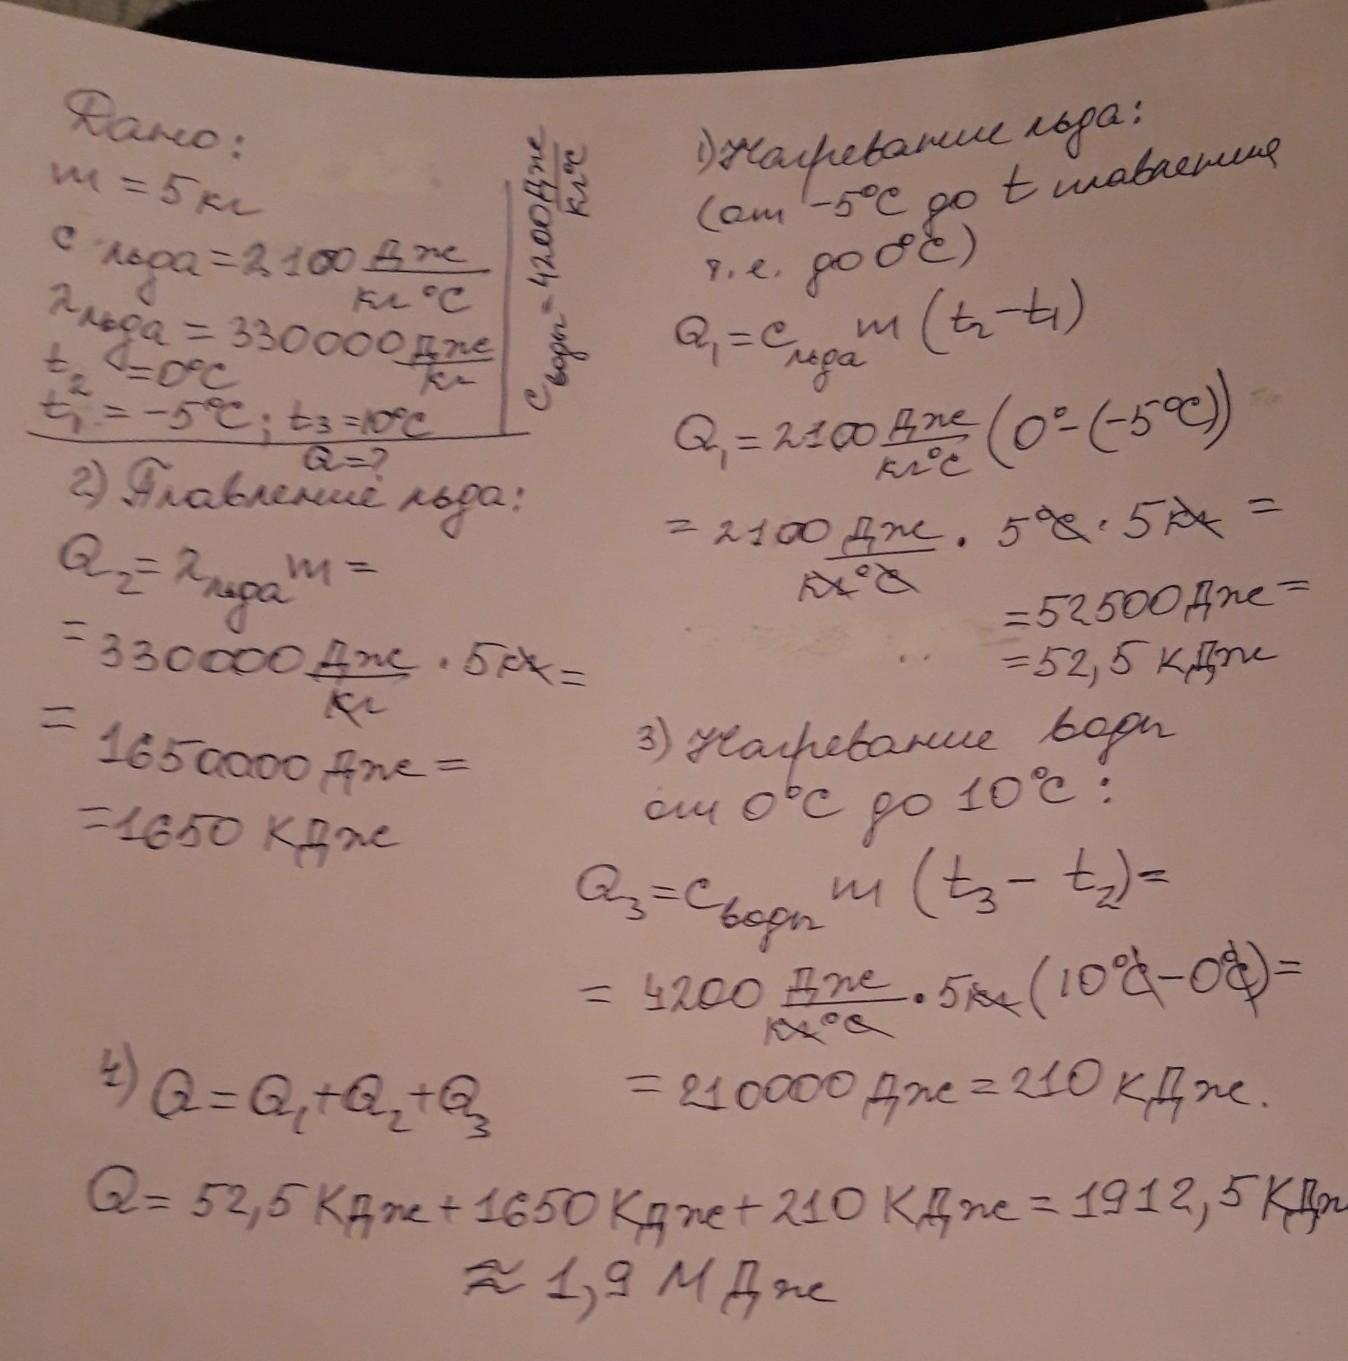 Дано:
m = 5 кг
c льда = 2100 Дж/кг°C
λ льда = 330000 Дж/кг
t₂ = 0°C
t₁ = -5°C; t₃ = 10°C
Q = ?
C воды = 4200 Дж/кг°C
1) Нагревание льда:
(от -5°C до t плавления
т.е. до 0°C)
Q₁ = c льда m (t₂ - t₁)
Q₁ = 2100 Дж/кг°C (0° - (-5°C))
= 2100 Дж/кг°C · 5°C · 5кг =
= 52500 Дж =
= 52,5 кДж
2) Плавление льда:
Q₂ = λ льда m =
= 330000 Дж/кг · 5кг =
= 1650000 Дж =
= 1650 КДж
3) Нагревание воды
от 0°C до 10°C:
Q₃ = c воды m (t₃ - t₂) =
= 4200 Дж/кг°C · 5кг (10°C - 0°C) =
= 210000 Дж = 210 кДж.
4) Q = Q₁ + Q₂ + Q₃
Q = 52,5 КДж + 1650 КДж + 210 КДж = 1912,5 КДж
≈ 1,9 МДж